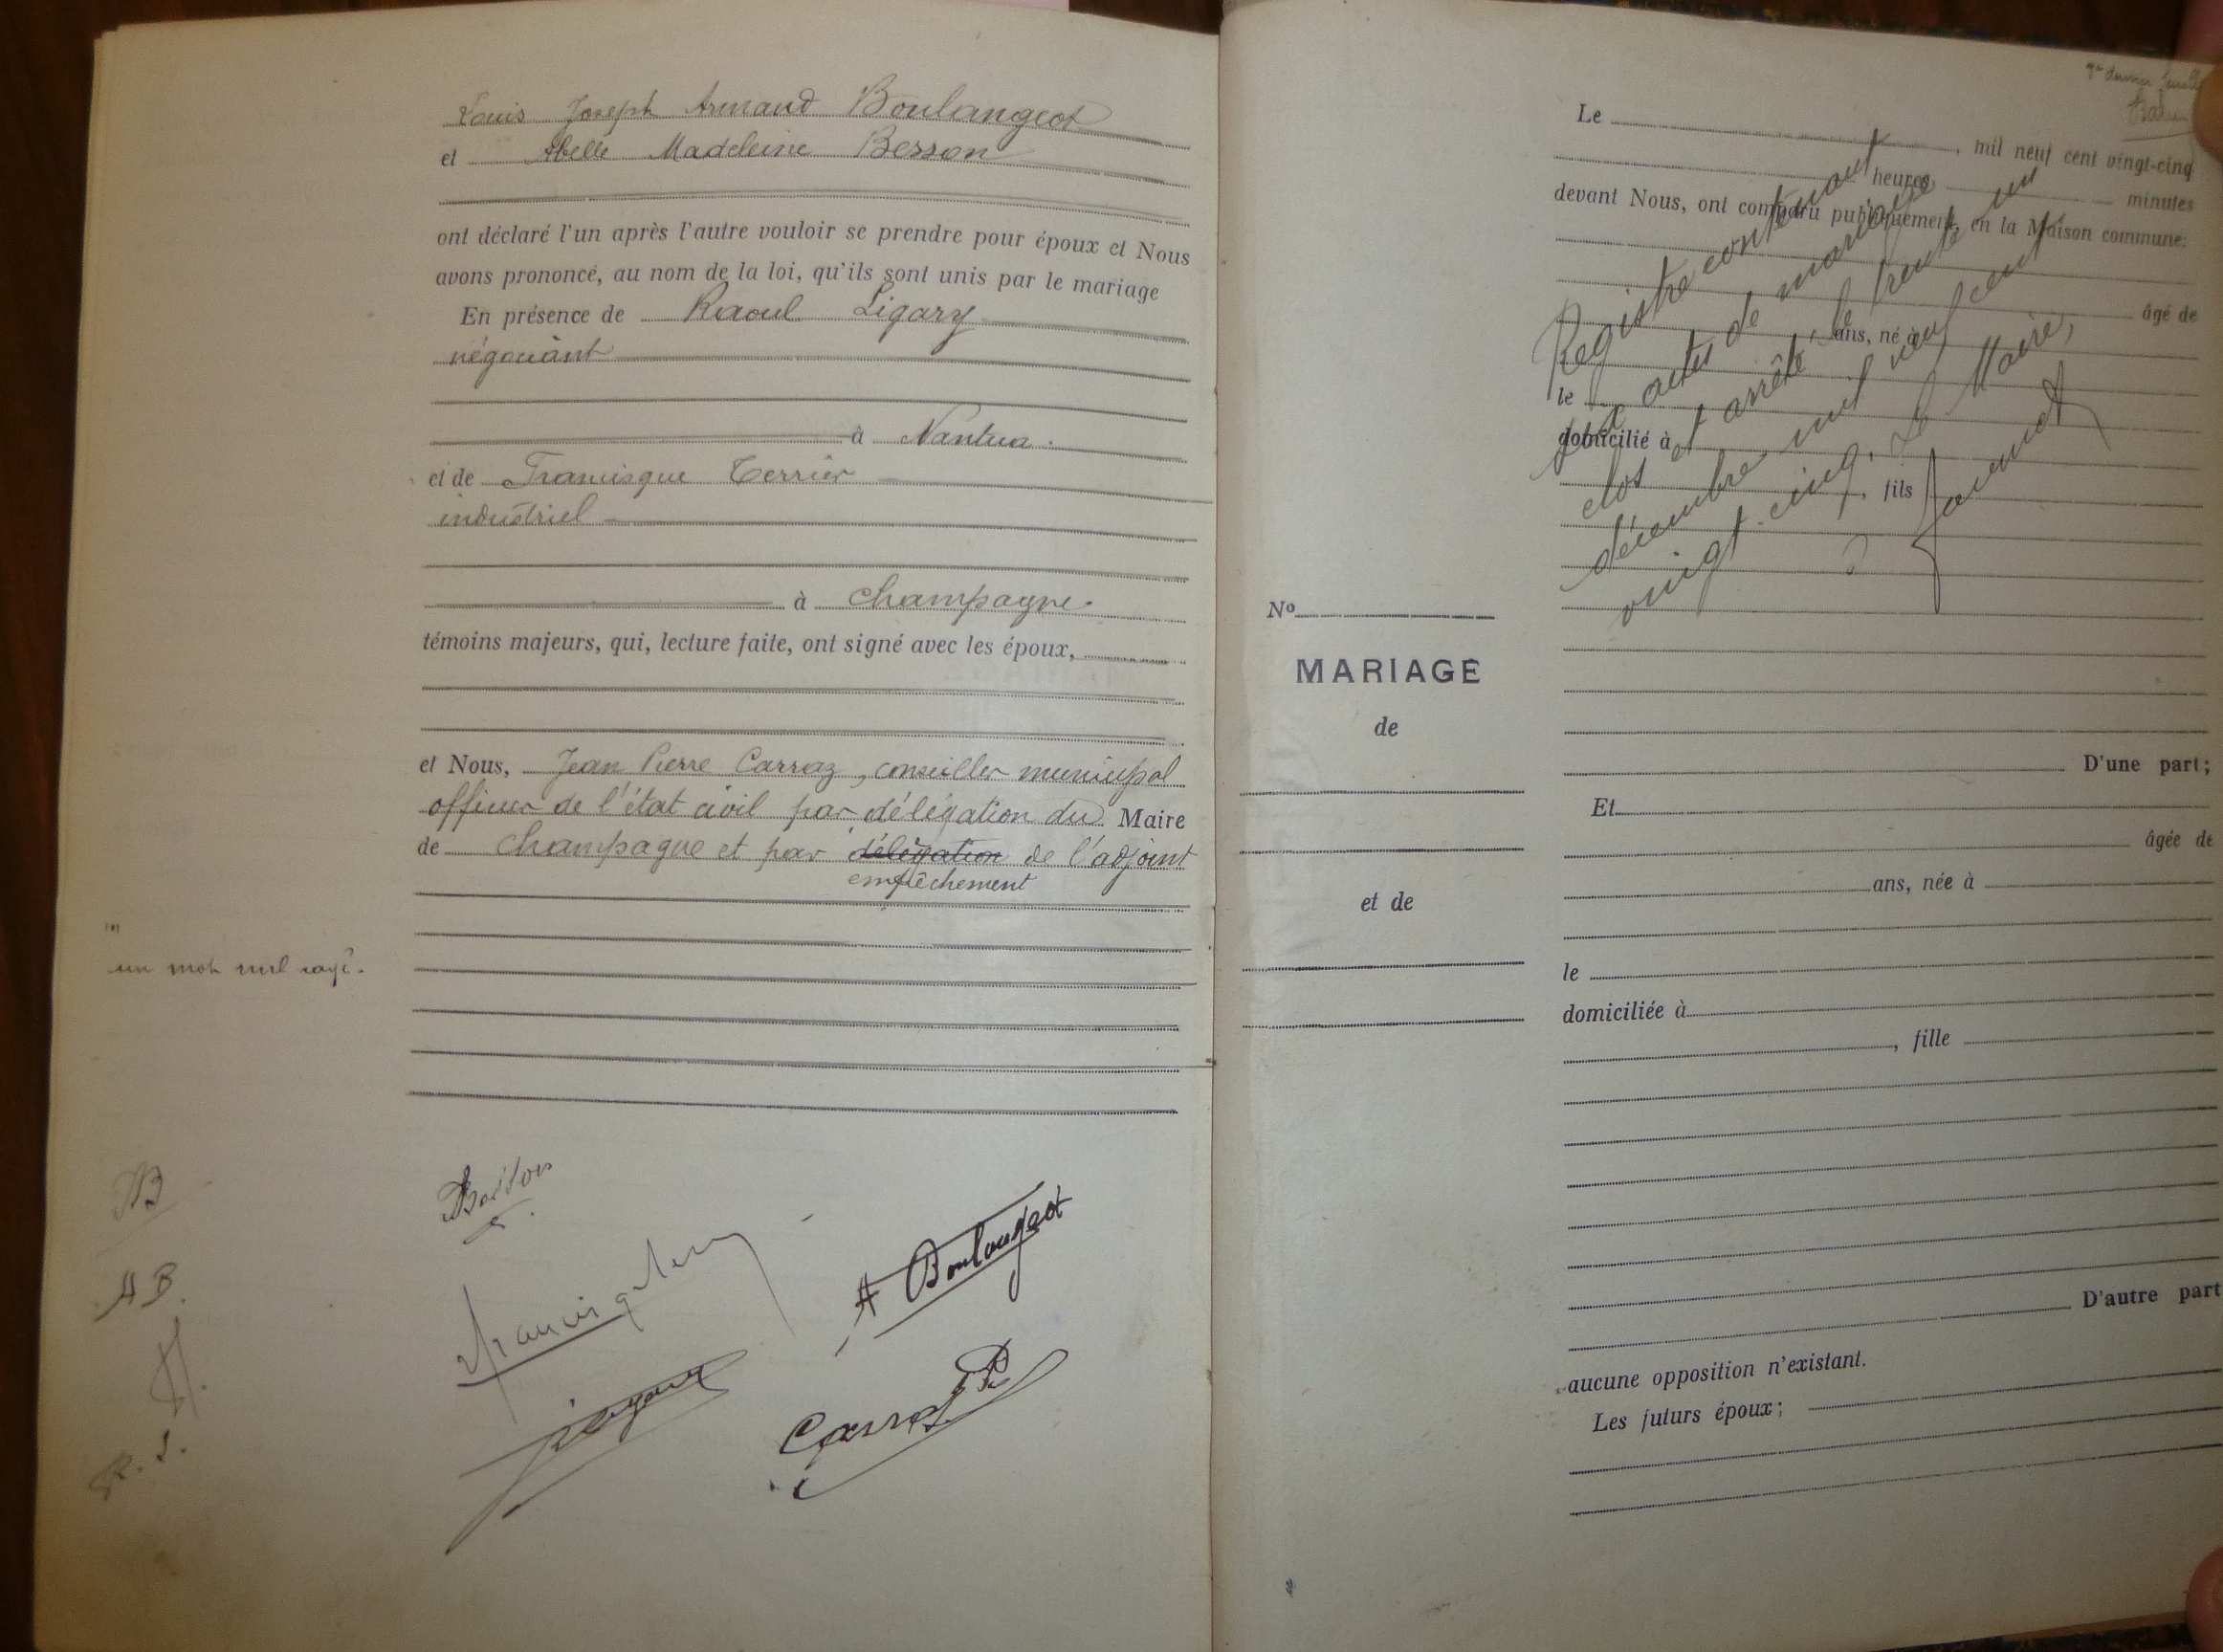 Louis Joseph Armand Boulangeot
et Abelle Madeleine Besson
ont déclaré l'un après l'autre vouloir se prendre pour époux et Nous
avons prononcé, au nom de la loi, qu'ils sont unis par le mariage
En présence de Raoul Ligary
négociant
à Nantua.
et de Francisque Terrier
industriel
à Champagne.
témoins majeurs, qui, lecture faite, ont signé avec les époux,
et Nous, Jean Pierre Carraz, conseiller municipal
officier de l'état civil par délégation du Maire
de Champagne et par délégation de l'adjoint
empêchement
un mot nul rayé.
B
AB.
R. L.
A Boulangeot
Carraz P
dernier
Le , mil neuf cent vingt-cinq
heures minutes
devant Nous, ont comparu publiquement en la Maison commune:
âgé de
ans, né à
le
domicilié à
, fils
Registre contenant
actes de mariage
clos et arrêté le trente un
décembre mil neuf cent
vingt cinq. Le Maire,
Nº
MARIAGE
de
et de
D'une part;
Et
âgée de
ans, née à
le
domiciliée à
, fille
D'autre part
aucune opposition n'existant.
Les futurs époux;